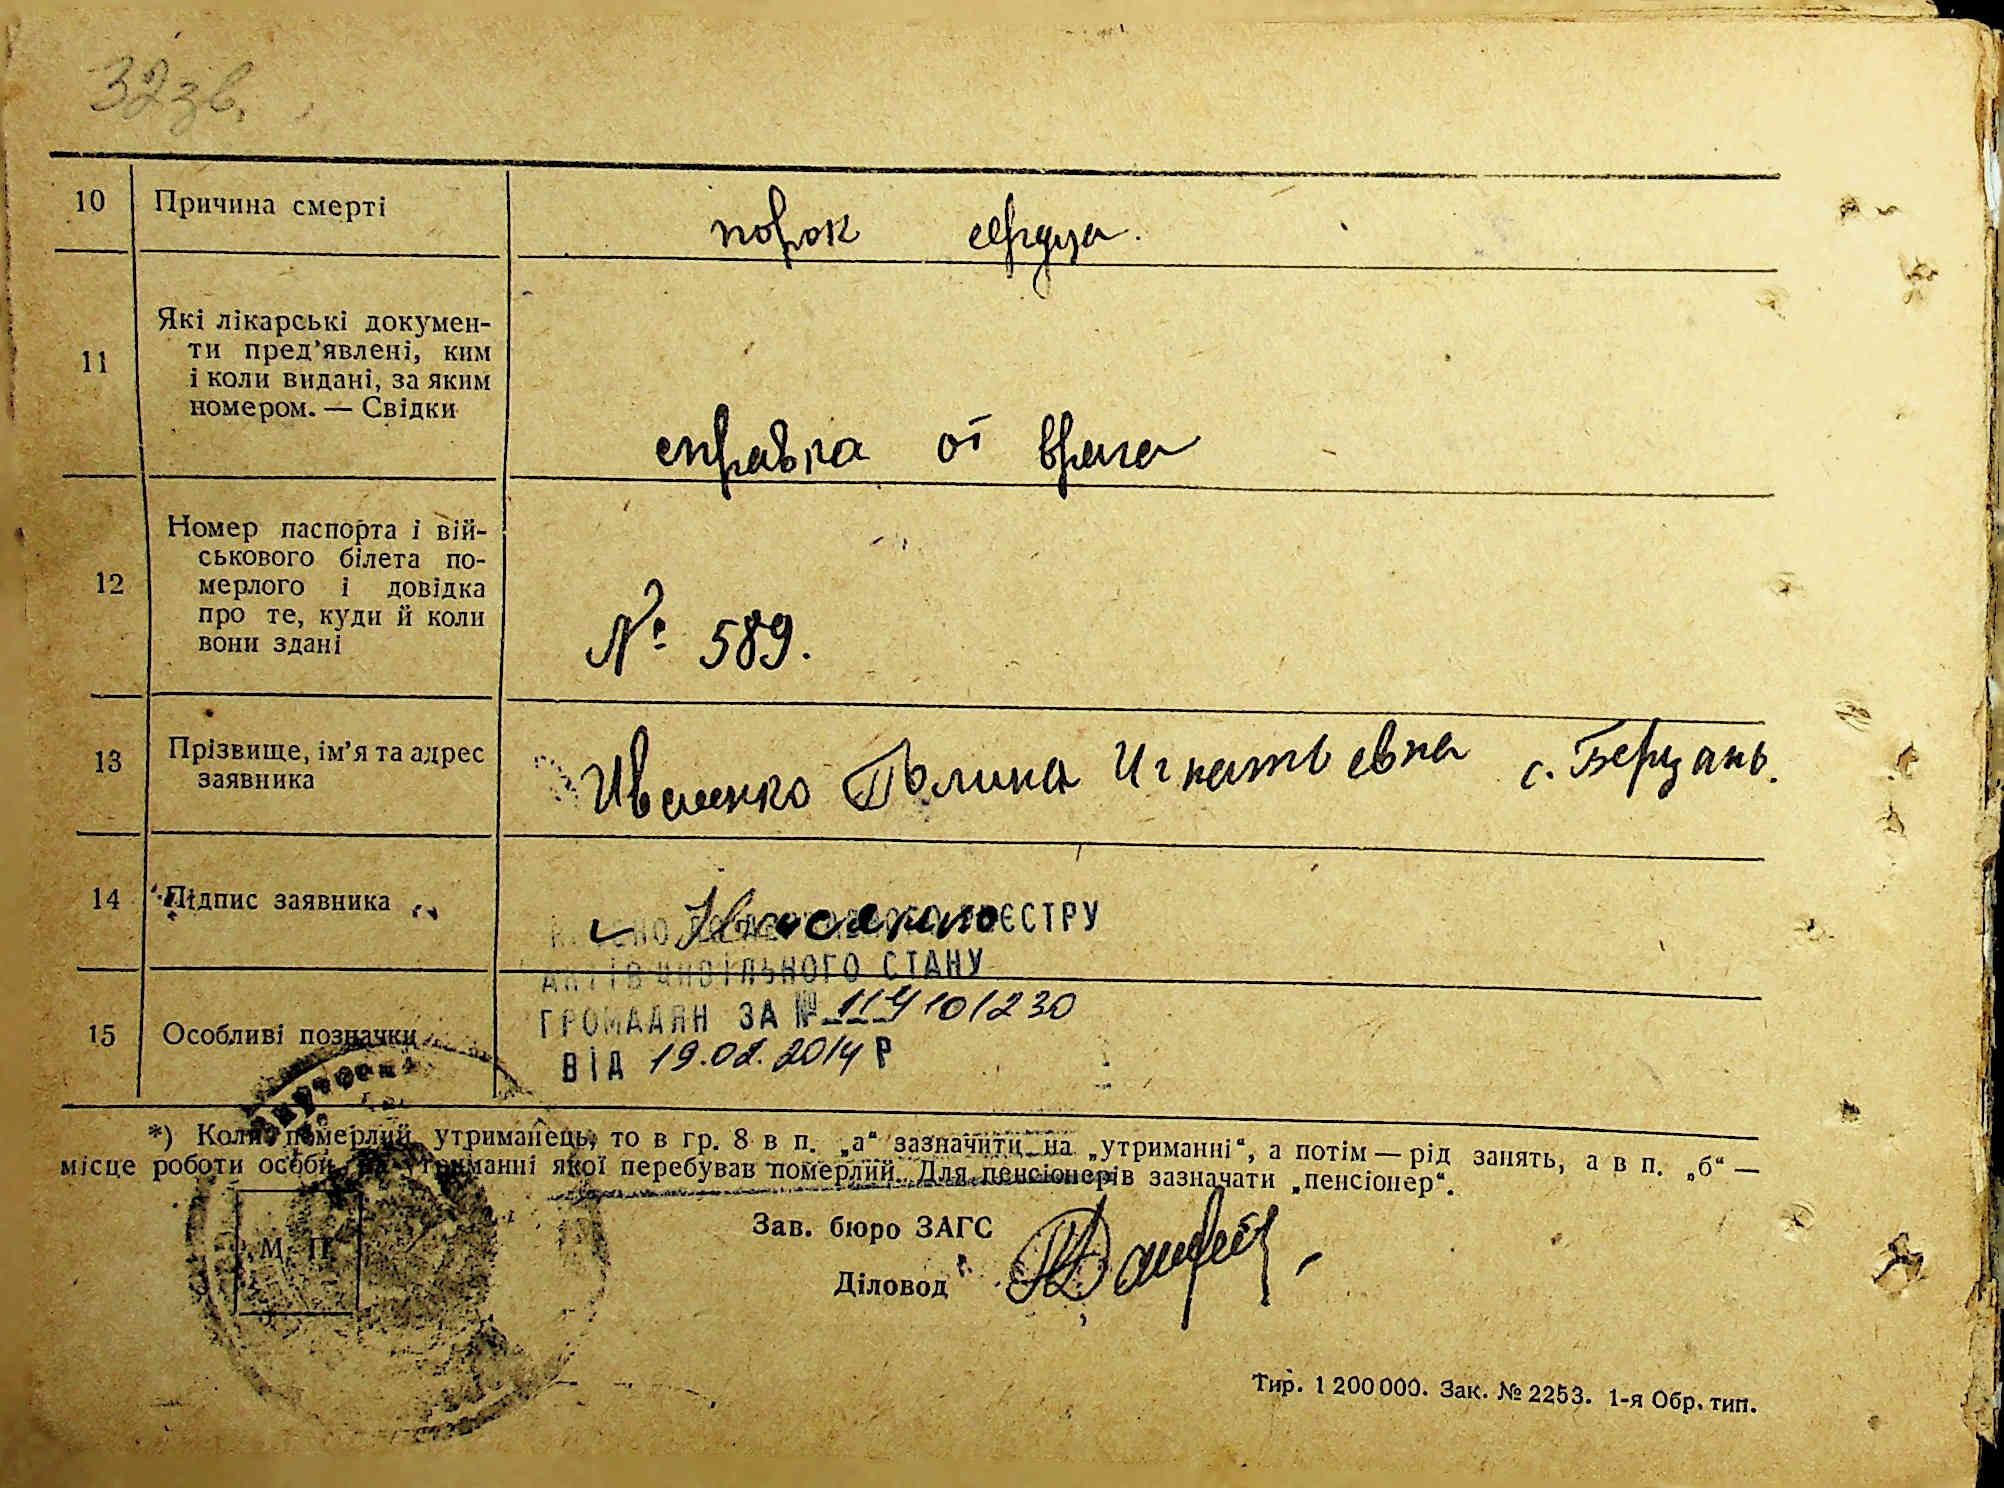 32зв.
10 Причина смерті порок сердца.
11 Які лікарські докумен-
ти пред'явлені, ким
і коли видані, за яким
номером. — Свідки
справка от врача
12 Номер паспорта і вій-
ськового білета по-
мерлого і довідка
про те, куди й коли
вони здані
№ 589.
13 Прізвище, ім'я та адрес
заявника
Полина Игнатьевна с.
14 Підпис заявника
РЕЄСТРУ
АКТІВ ЦИВІЛЬНОГО СТАНУ
ГРОМАДЯН ЗА № 119101230
15 Особливі позначки
ВІД 19.02.2014 Р
*) Коли померлий утриманець, то в гр. 8 в п. „а“ зазначити на „утриманні“, а потім — рід занять, а в п. „б“ —
місце роботи особи, на утриманні якої перебував померлий. Для пенсіонерів зазначати „пенсіонер“.
М. П.
Зав. бюро ЗАГС
Діловод
Тир. 1 200 000. Зак. № 2253. 1-я Обр. тип.